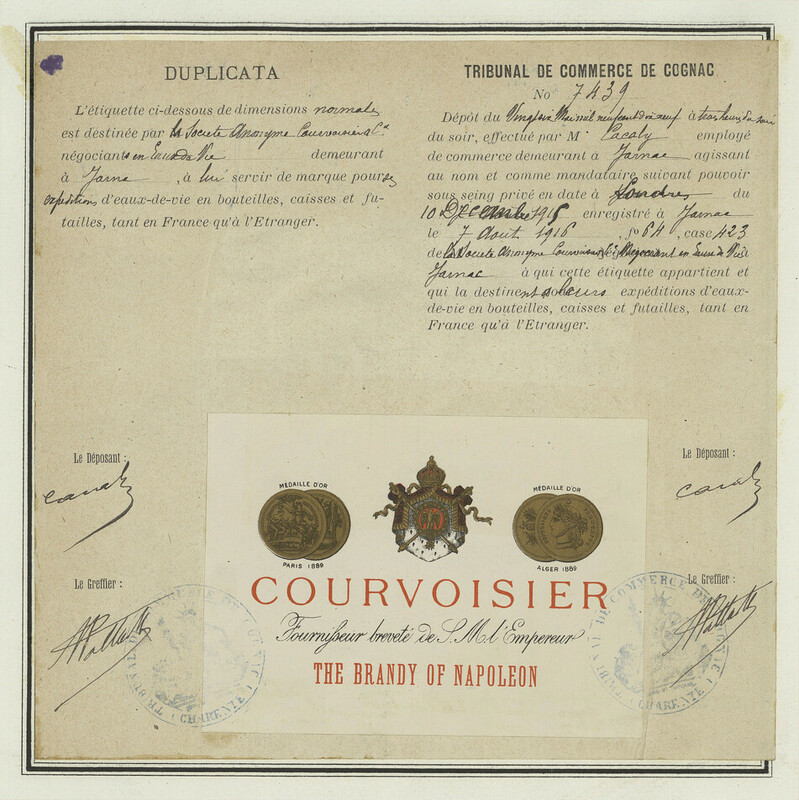 DUPLICATA
L'étiquette ci-dessous de dimensions normales
est destinée par la Societe Anonyme Courvoisier & Cie
négociants en Eaux de Vie demeurant
à Jarnac, à lui servir de marque pour ses
expéditions d'eaux-de-vie en bouteilles, caisses et fu-
tailles, tant en France qu'à l'Etranger.
TRIBUNAL DE COMMERCE DE COGNAC
No 7439
Dépôt du Vingt Mai mil neuf cent dix neuf à trois heures du soir
du soir, effectué par M. employé
de commerce demeurant à Jarnac agissant
au nom et comme mandataire suivant pouvoir
sous seing privé en date à Londres du
10 Decembre 1915 enregistré à Jarnac
le 7 Août 1916, fo 64, case 423
de la Societe Anonyme Courvoisier & Cie Négociant en Eaux de Vie à
Jarnac à qui cette étiquette appartient et
qui la destinent à leurs expéditions d'eaux-
de-vie en bouteilles, caisses et futailles, tant en
France qu'à l'Etranger.
Le Déposant :
Le Déposant :
MÉDAILLE D'OR
PARIS 1889
MÉDAILLE D'OR
ALGER 1889
COURVOISIER
Fournisseur breveté de S. M. l'Empereur
THE BRANDY OF NAPOLEON
Le Greffier :
Le Greffier :
TRIBUNAL DE COMMERCE DE COGNAC
(CHARENTE)
TRIBUNAL DE COMMERCE DE COGNAC
(CHARENTE)